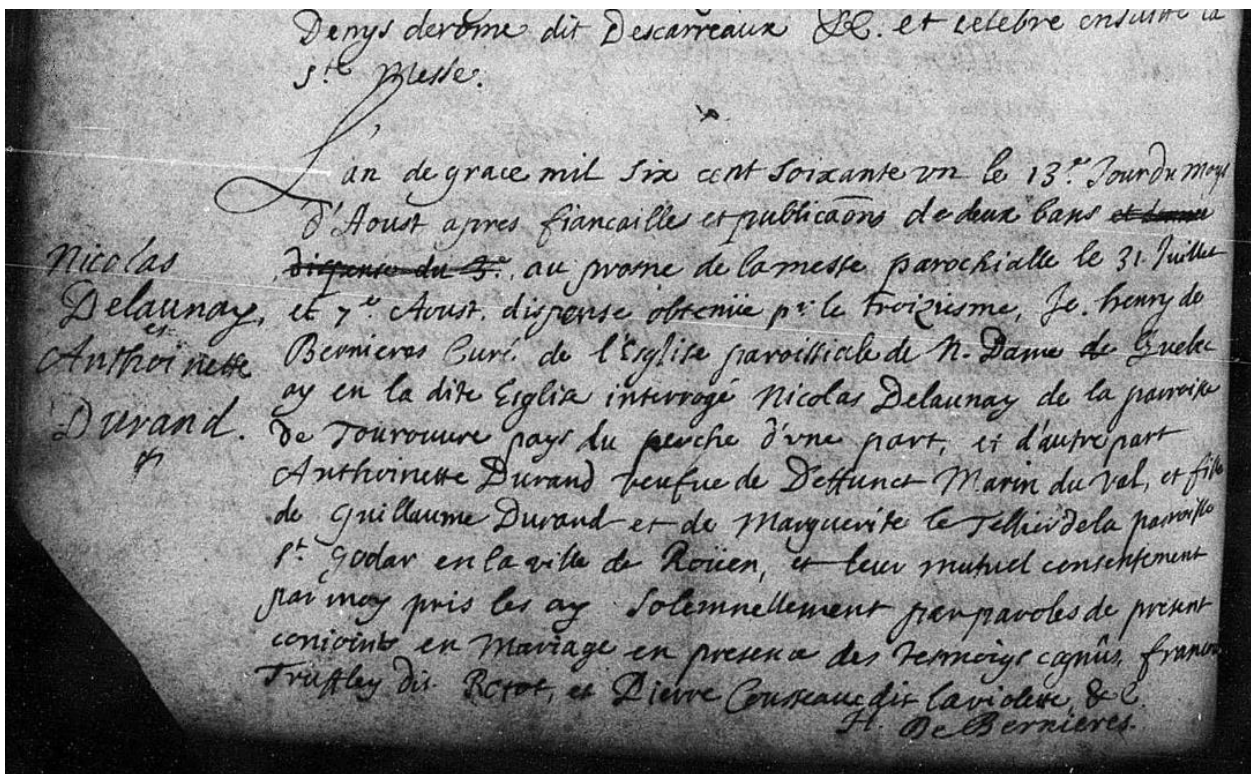 Denys derome dit Descarreaux &c. et celebre ensuitte la
s.te Messe.
L'an de grace mil six cent soixante vn le 13.e Jour du moys
d'Aoust apres fiancailles et publicãons de deux bans et donné
dispense du 3.e, au prosne de la messe parochialle le 31. Juillet
et 7.e Aoust. dispense obtenüe pr. le troiziesme, Je. henry de
Bernieres Curé de l'Esglise paroissiale de N. Dame de Quebec
ay en la dite Esglise interrogé Nicolas Delaunay de la paroisse
de Tourouure pays du perche d'vne part, et d'autre part
Anthoinette Durand veufue de Deffunct Marin du Val, et fille
de Guillaume Durand et de Marguerite le Tellier de la paroisse
S.t Godar en la ville de Roüen, et leur mutuel consentement
par moy pris les ay solemnellement par paroles de present
conioints en Mariage en presence des tesmoigs cognûs, francois
Truffley dit Rotot, et Pierre Cousseau dit la violette, &c.
H. De Bernieres.
Nicolas
Delaunay,
et
Anthoinette
Durand.